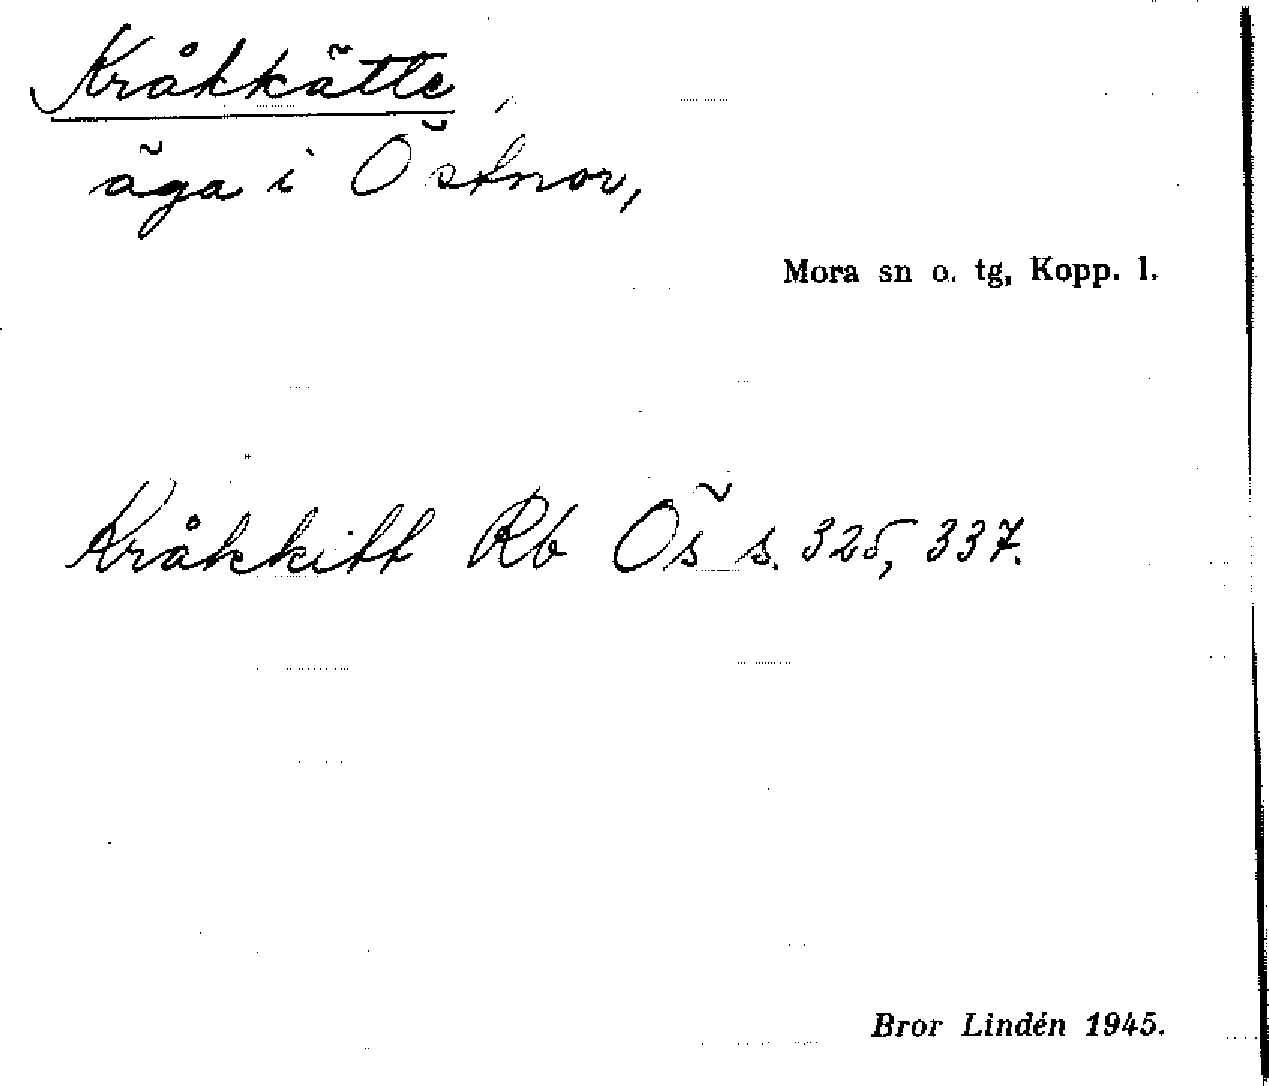 Kråkkätte,
äga i Östnor,
Mora sn o. tg, Kopp. l.
Kråkkitt Rb Ös s. 325, 337.
Bror Lindén 1945.